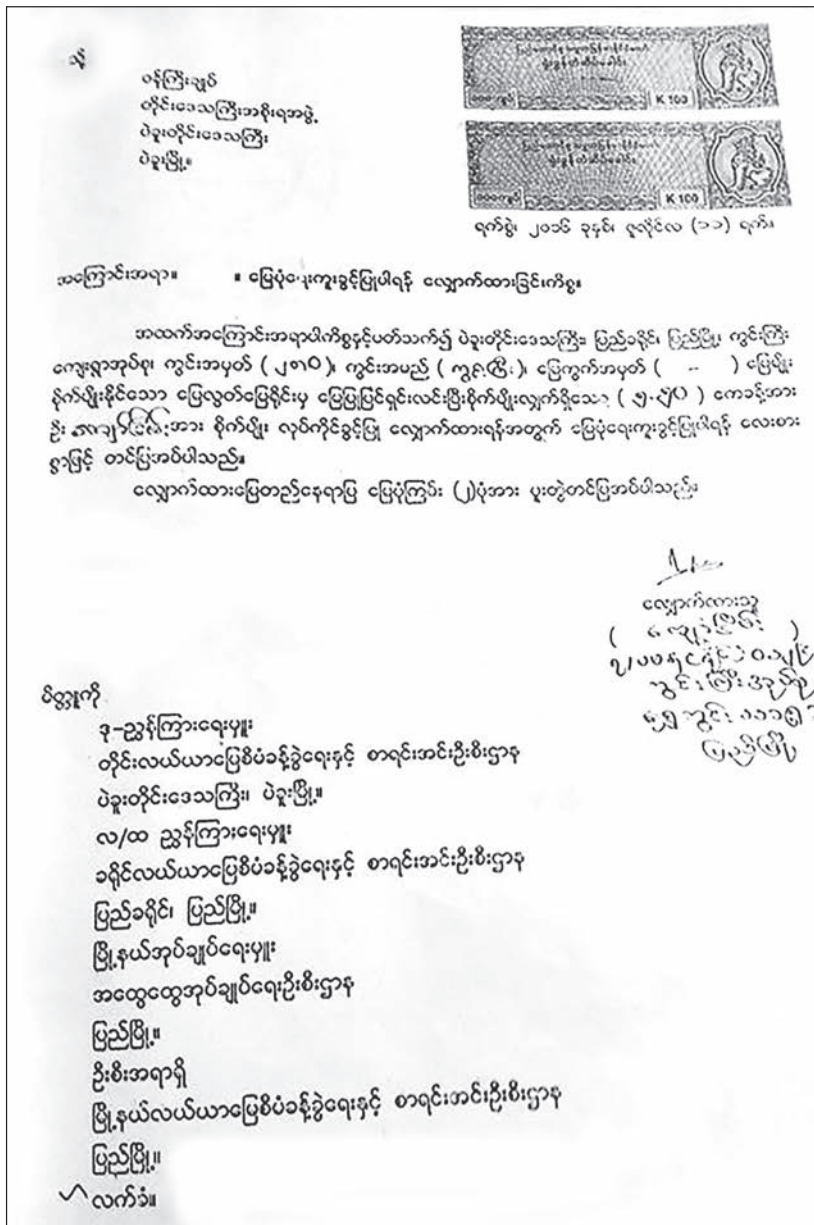 သို့
ဝန်ကြီးချုပ်
တိုင်းဒေသကြီးအစိုးရအဖွဲ့
ပဲခူးတိုင်းဒေသကြီး
ပဲခူးမြို့။
ပြည်ထောင်စု သမ္မတမြန်မာနိုင်ငံတော်
ရုံးခွန်တံဆိပ်ခေါင်း
၁၀၀ကျပ် K 100
ပြည်ထောင်စု သမ္မတမြန်မာနိုင်ငံတော်
ရုံးခွန်တံဆိပ်ခေါင်း
၁၀၀ကျပ် K 100
ရက်စွဲ၊ ၂၀၁၆ ခုနှစ်၊ ဇူလိုင်လ (၁၁) ရက်။
အကြောင်းအရာ။ ။ မြေပုံရေးကူးခွင့်ပြုပါရန် လျှောက်ထားခြင်းကိစ္စ။
အထက်အကြောင်းအရာပါကိစ္စနှင့်ပတ်သက်၍ ပဲခူးတိုင်းဒေသကြီး၊ ပြည်ခရိုင်၊ ပြည်မြို့၊ ကွင်းကြီး
ကျေးရွာအုပ်စု၊ ကွင်းအမှတ် ( ၂၈၁၀ )၊ ကွင်းအမည် ( )၊ မြေကွက်အမှတ် ( -- ) မြေမျိုး
စိုက်ပျိုးနိုင်သော မြေလွတ်မြေရိုင်းမှ မြေပြုပြင်ရှင်းလင်းပြီးစိုက်ပျိုးလျှက်ရှိသော ( ၅.၅၀ ) ဧကခန့်အား
ဦး အား စိုက်ပျိုး လုပ်ကိုင်ခွင့်ပြု လျှောက်ထားရန်အတွက် မြေပုံရေးကူးခွင့်ပြုပါရန် လေးစား
စွာဖြင့် တင်ပြအပ်ပါသည်။
လျှောက်ထားမြေတည်နေရာပြ မြေပုံကြမ်း (၂)ပုံအား ပူးတွဲတင်ပြအပ်ပါသည်။
လျှောက်ထားသူ
ကွင်းကြီးအုပ်စု
ပြည်မြို့
မိတ္တူကို
ဒု-ညွှန်ကြားရေးမှူး
တိုင်းလယ်ယာမြေစီမံခန့်ခွဲရေးနှင့် စာရင်းအင်းဦးစီးဌာန
ပဲခူးတိုင်းဒေသကြီး၊ ပဲခူးမြို့။
လ/ထ ညွှန်ကြားရေးမှူး
ခရိုင်လယ်ယာမြေစီမံခန့်ခွဲရေးနှင့် စာရင်းအင်းဦးစီးဌာန
ပြည်ခရိုင်၊ ပြည်မြို့။
မြို့နယ်အုပ်ချုပ်ရေးမှူး
အထွေထွေအုပ်ချုပ်ရေးဦးစီးဌာန
ပြည်မြို့။
ဦးစီးအရာရှိ
မြို့နယ်လယ်ယာမြေစီမံခန့်ခွဲရေးနှင့် စာရင်းအင်းဦးစီးဌာန
ပြည်မြို့။
လက်ခံ။